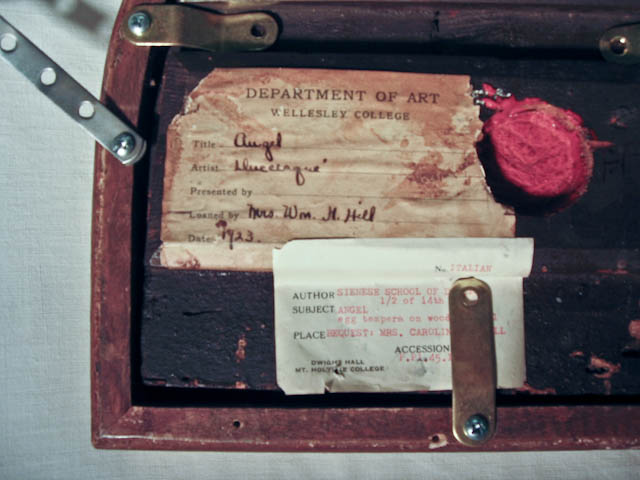 DEPARTMENT OF ART
WELLESLEY COLLEGE
Title Angel
Artist
Presented by
Loaned by Mrs. Wm. H. Hill
Date 1923.
No. ITALIAN
AUTHOR SIENESE SCHOOL OF
1/2 of 14th
SUBJECT ANGEL
egg tempera on wood
PLACE BEQUEST: MRS. CAROLIN
ACCESSION
DWIGHT HALL
MT. HOLYOKE COLLEGE